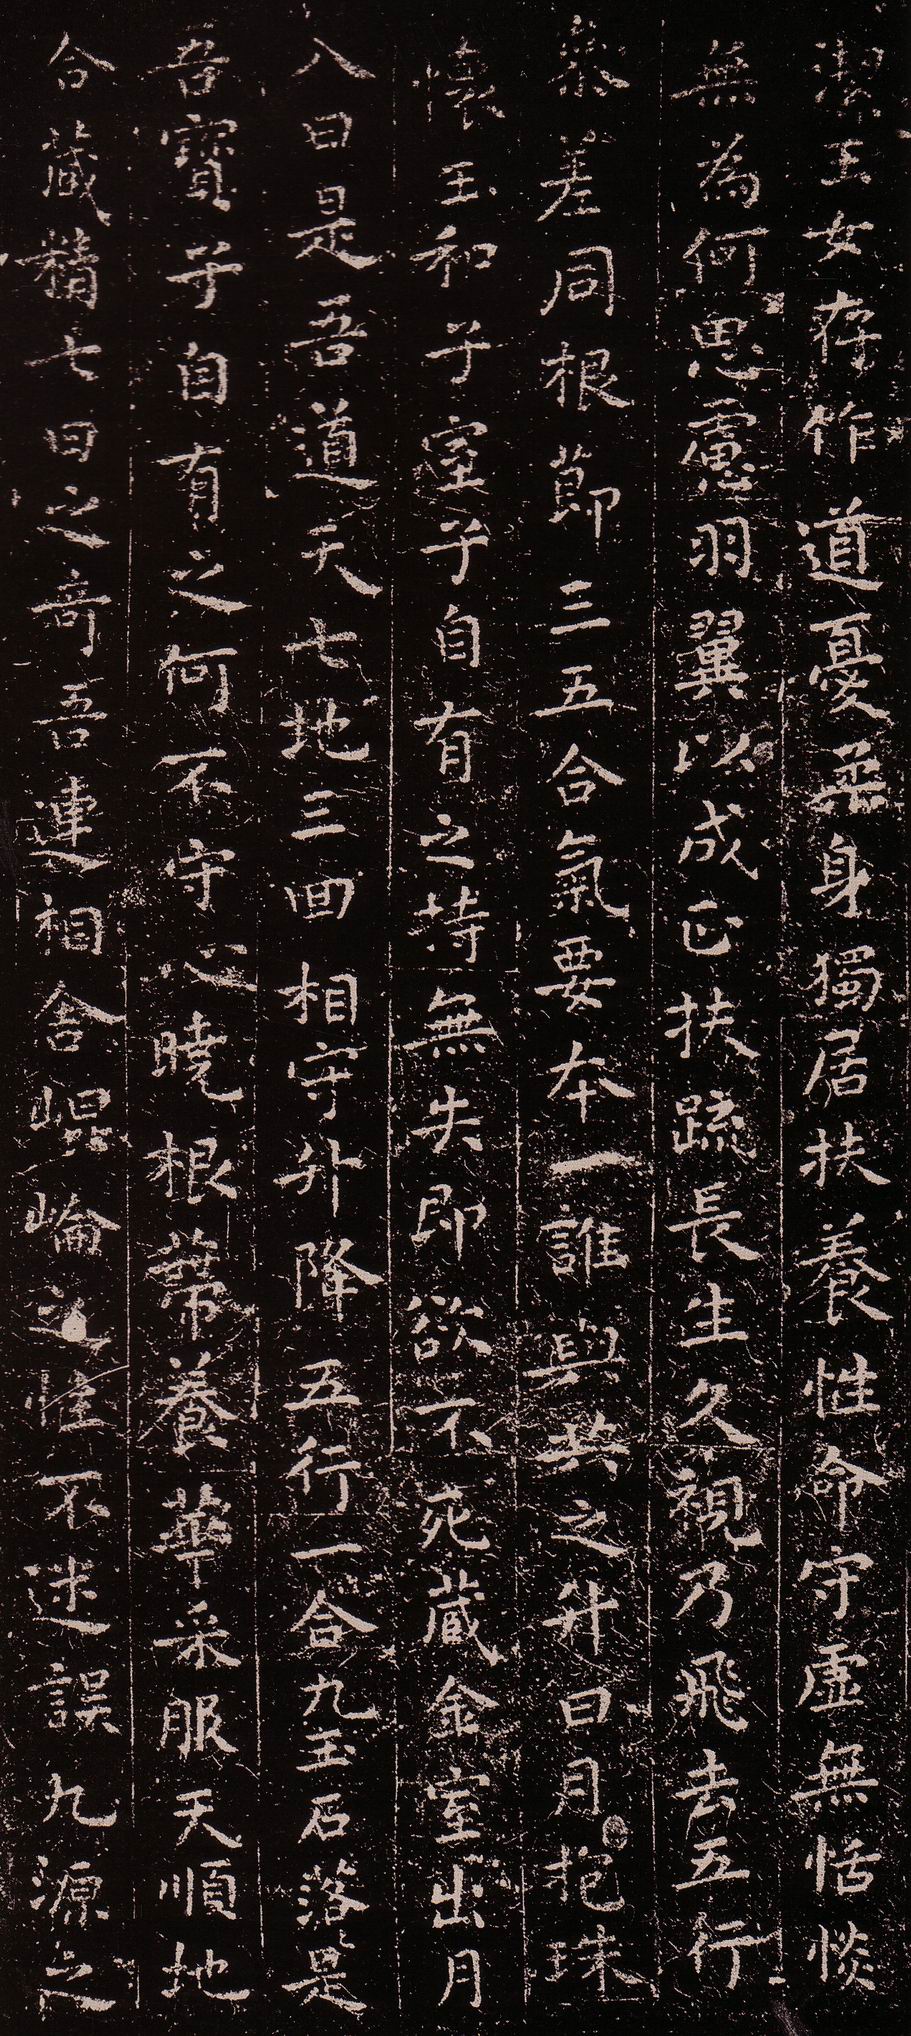 潔玉女存作道憂柔身獨居扶養性命守虛無恬惔
無為何思慮羽翼以成正扶疏長生久視乃飛去五行
參差同根節三五合氣要本一誰與共之升日月抱珠
懷玉和子室子自有之持無失即欲不死藏金室出月
入日是吾道天七地三回相守升降五行一合九玉石落是
吾寶子自有之何不守心曉根蒂養華采服天順地
合藏精七日之奇吾連相舍崐崘之性不迷誤九源之